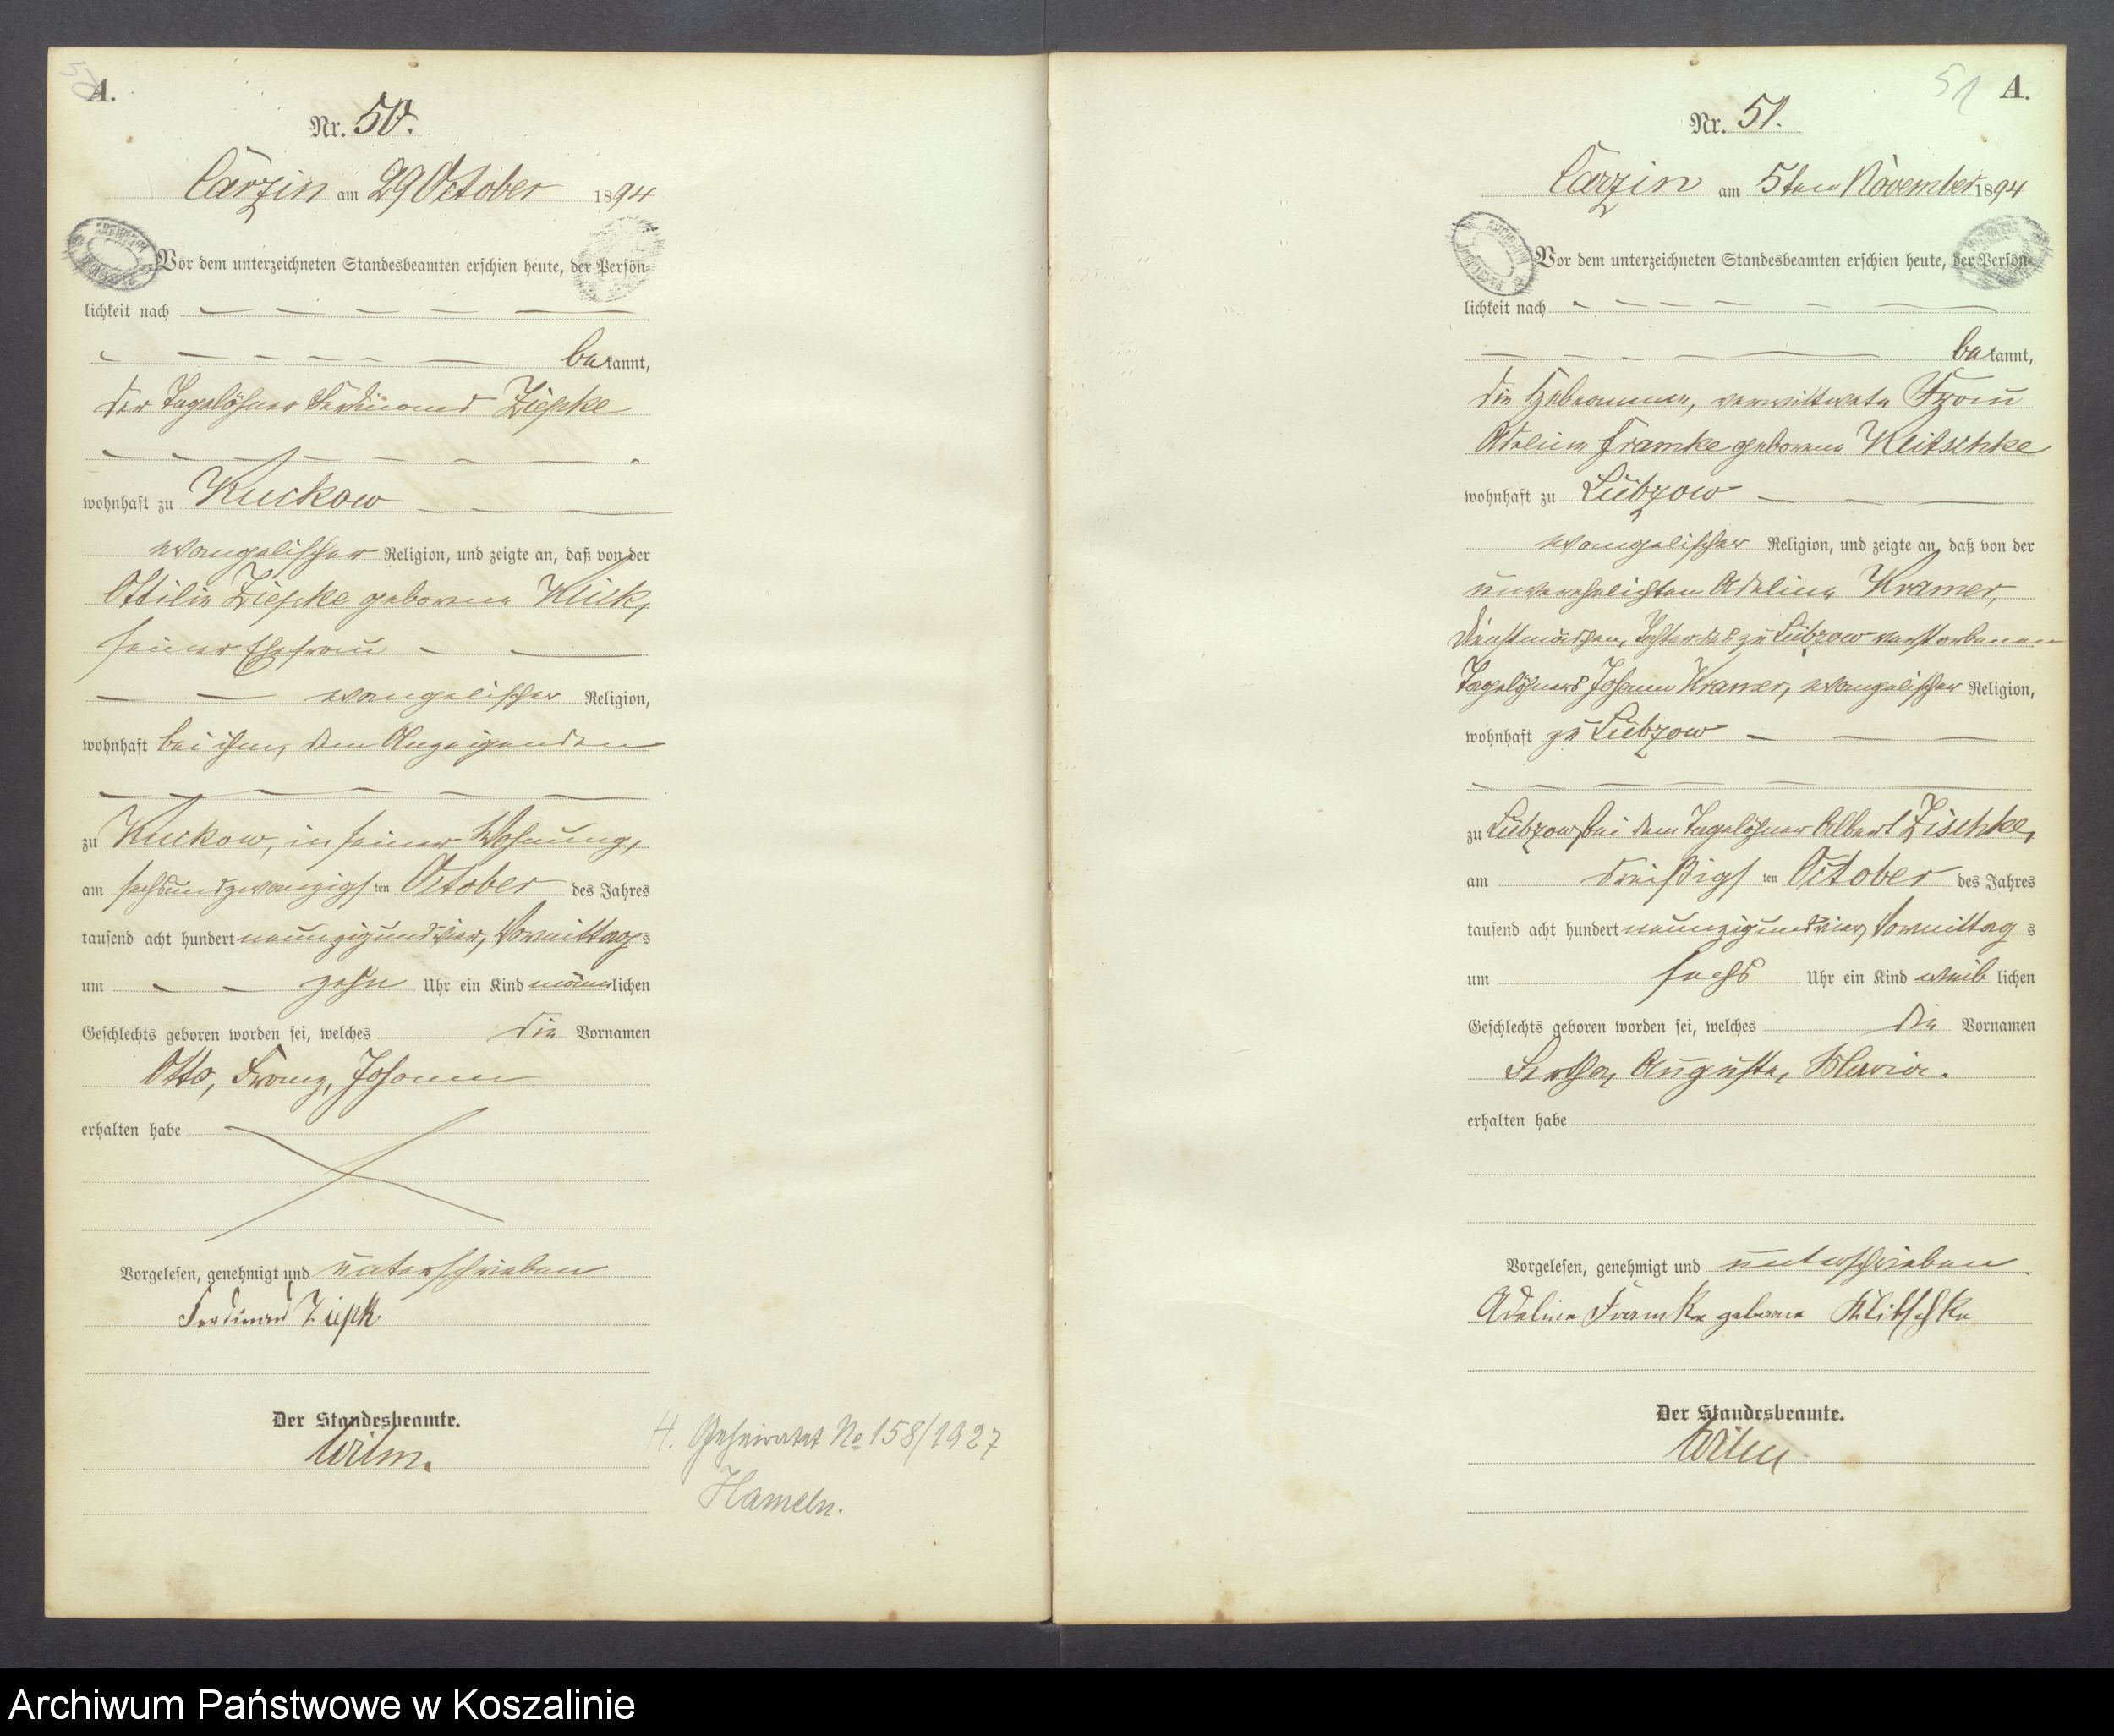 50
A.
Nr. 50.
Carzin am 29 October 1894
Vor dem unterzeichneten Standesbeamten erschien heute, der Persön-
lichkeit nach
bekannt,
der Tagelöhner Ferdinand Ziepke
wohnhaft zu Kuckow
evangelischer Religion, und zeigte an, daß von der
Ottilie Ziepke geborene Klick,
seiner Ehefrau
evangelischer Religion,
wohnhaft bei ihm, dem Anzeigenden
zu Kuckow, in seiner Wohnung,
am sechsundzwanzigsten October des Jahres
tausend acht hundert neunzigundvier, Vormittags
um zehn Uhr ein Kind männlichen
Geschlechts geboren worden sei, welches die Vornamen
Otto, Franz, Johann
erhalten habe
Vorgelesen, genehmigt und unterschrieben
Ferdinand Ziepk
Der Standesbeamte.
Wilm.
H. Geheiratet No 158/1927
Hameln.
51 A.
Nr. 51.
Carzin am 5ten November 1894
Vor dem unterzeichneten Standesbeamten erschien heute, der Persön-
lichkeit nach
bekannt,
die Hebeamme, verwittwete Frau
Adeline Framke geborene Klitschke
wohnhaft zu Lübzow
evangelischer Religion, und zeigte an, daß von der
unverehelichten Adeline Kramer,
Dienstmädchen, Tochter des zu Lübzow verstorbenen
Tagelöhners Johann Kramer, evangelischer Religion,
wohnhaft zu Lübzow
zu Lübzow bei dem Tagelöhner Albert Zischke,
am dreißigsten October des Jahres
tausend acht hundert neunzigundvier, Vormittags
um sechs Uhr ein Kind weiblichen
Geschlechts geboren worden sei, welches die Vornamen
Bertha, Auguste, Maria.
erhalten habe
Vorgelesen, genehmigt und unterschrieben
Adeline Framke geborne Klitschke
Der Standesbeamte.
Wilm
Archiwum Państwowe w Koszalinie